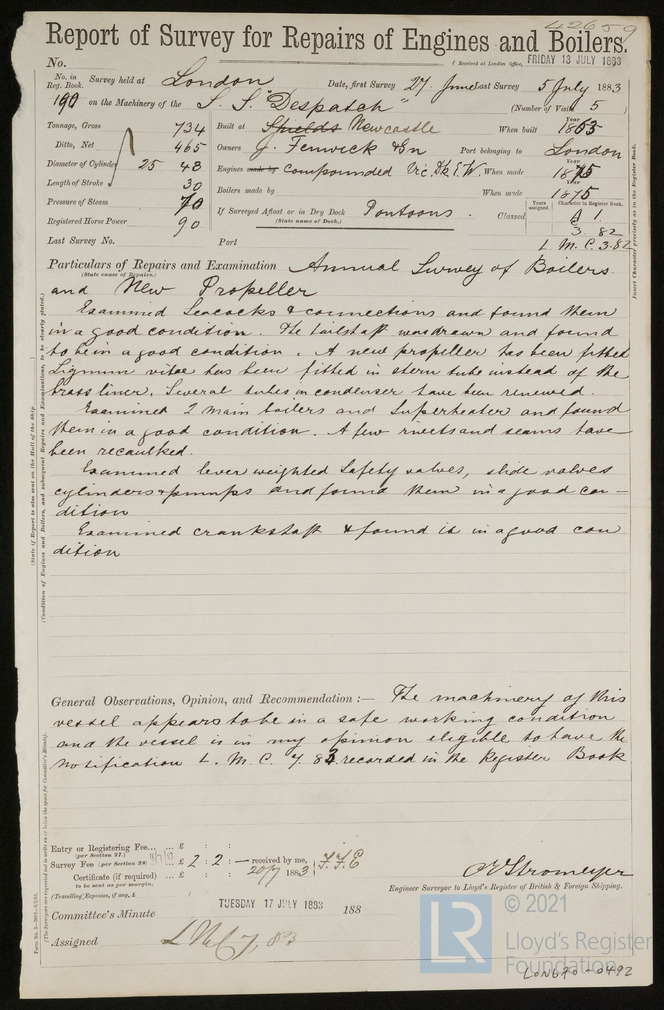 42659
Report of Survey for Repairs of Engines and Boilers.
No. (Received at London Office, FRIDAY 13 JULY 1883
No. in Reg. Book. Survey held at London Date, first Survey 27 June Last Survey 5 July 1883
190 on the Machinery of the S.S. "Despatch" (Number of Visits 5)
Tonnage, Gross 734 Built at Shields Newcastle When built Year 1863
Ditto, Net 465 Owners J. Fenwick & Sn Port belonging to London
Diameter of Cylinder 25 48 Engines made by compounded Vic. Dk E.W. When made Year 1875
Length of Stroke 30 Boilers made by When made Year 1875
Pressure of Steam 70 If Surveyed Afloat or in Dry Dock Pontoons. Classed Years assigned. Character in Register Book. A 1.
(State name of Dock.)
Registered Horse Power 90 3. 82
Last Survey No. Port L. M. C. 3.82
Insert Character precisely as in the Register Book.
Particulars of Repairs and Examination Annual Survey of Boilers
(State cause of Repairs.)
and New Propeller
Examined Seacocks & connections and found them
in a good condition. The tailshaft was drawn and found
to be in a good condition. A new propeller has been fitted
Lignum vitae has been fitted in stern tube instead of the
brass liner. Several tubes in condenser have been renewed.
Examined 2 main boilers and Superheater and found
them in a good condition. A few rivets and seams have
been recaulked.
Examined lever weighted Safety valves, slide valves
cylinders & pumps and found them in a good con-
dition
Examined crankshaft & found it in a good con
dition
(State if Report is also sent on the Hull of the Ship.
(Condition of Engines and Boilers, and subsequent Repairs and Examinations, to be clearly stated.)
General Observations, Opinion, and Recommendation :— The machinery of this
vessel appears to be in a safe working condition
and the vessel is in my opinion eligible to have the
notification L. M. C. 7. 83 recorded in the Register Book
Entry or Registering Fee... £ : :
(per Section 27.)
Survey Fee (per Section 28) £ 2 : 2 : — received by me, F.F.E
20/7 1883
Certificate (if required) ... £ : :
to be sent as per margin.
(Travelling Expenses, if any, £
C E Stromeyer
Engineer Surveyor to Lloyd's Register of British & Foreign Shipping.
Committee's Minute TUESDAY 17 JULY 1883 188
Assigned L M C 7, 83
© 2021
LR Lloyd's Register
Foundation
LON670-0492